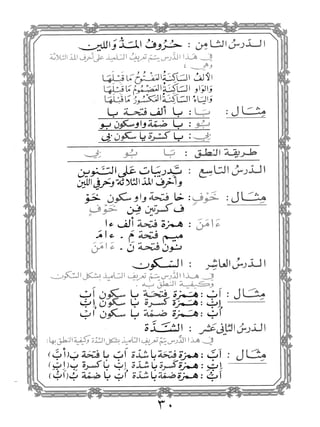 الدرس الثامن : حروف المد واللين
في هذا الدرس يتم تعريف التلاميذ على أحرف المد الثلاثة
وهي :
الألف الساكنة المفتوح ما قبلها
والواو الساكنة المضموم ما قبلها
والياء الساكنة المكسور ما قبلها
مثال : بَا : با ألف فتحة با
بُو : با ضمة واو سكون بو
بِي : با كسرة يا سكون بي
طريقة النطق : بَا بُو بِي
الدرس التاسع : تدريبات على التنوين
وأحرف المد الثلاثة وحرفي اللين
مثال : خَوْفٍ : خا فتحة واو سكون خَوْ
ف كسرتين فٍ خَوْفٍ
ءَامَنَ : همزة فتحة ألف ءا
ميم فتحة مَ . ءامَ
نون فتحة نَ . ءَامَنَ
الدرس العاشر : السكون
في هذا الدرس يتم تعريف التلاميذ بشكل السكون
وكيفية النطق به :
مثال : أَبْ : همزة فتحة با سكون أَبْ
إِبْ : همزة كسرة با سكون إِبْ
أُبْ : همزة ضمة با سكون أُبْ
الدرس الثاني عشر : الشدة
في هذا الدرس يتم تعريف التلاميذ بشكل الشدة وكيفية النطق بها :
مثال : أَبَّ : همزة فتحة با شدة أَبْ با فتحة بَ (أَبَّ)
إِبِّ : همزة كسرة با شدة إِبْ با كسرة بِ (إِبِّ)
أُبُّ : همزة ضمة با شدة أُبْ با ضمة بُ (أُبُّ)
٣٠